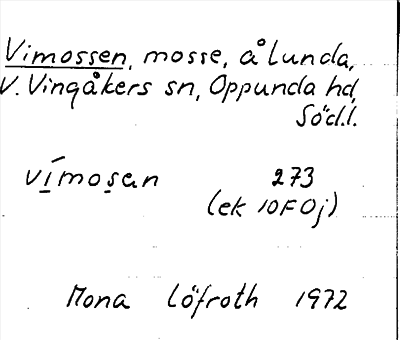 Vimossen, mosse, å Lunda,
V. Vingåkers sn, Oppunda hd,
Södl.
ví̱moṣan 273
(ek 10F0j)
Mona Löfroth 1972